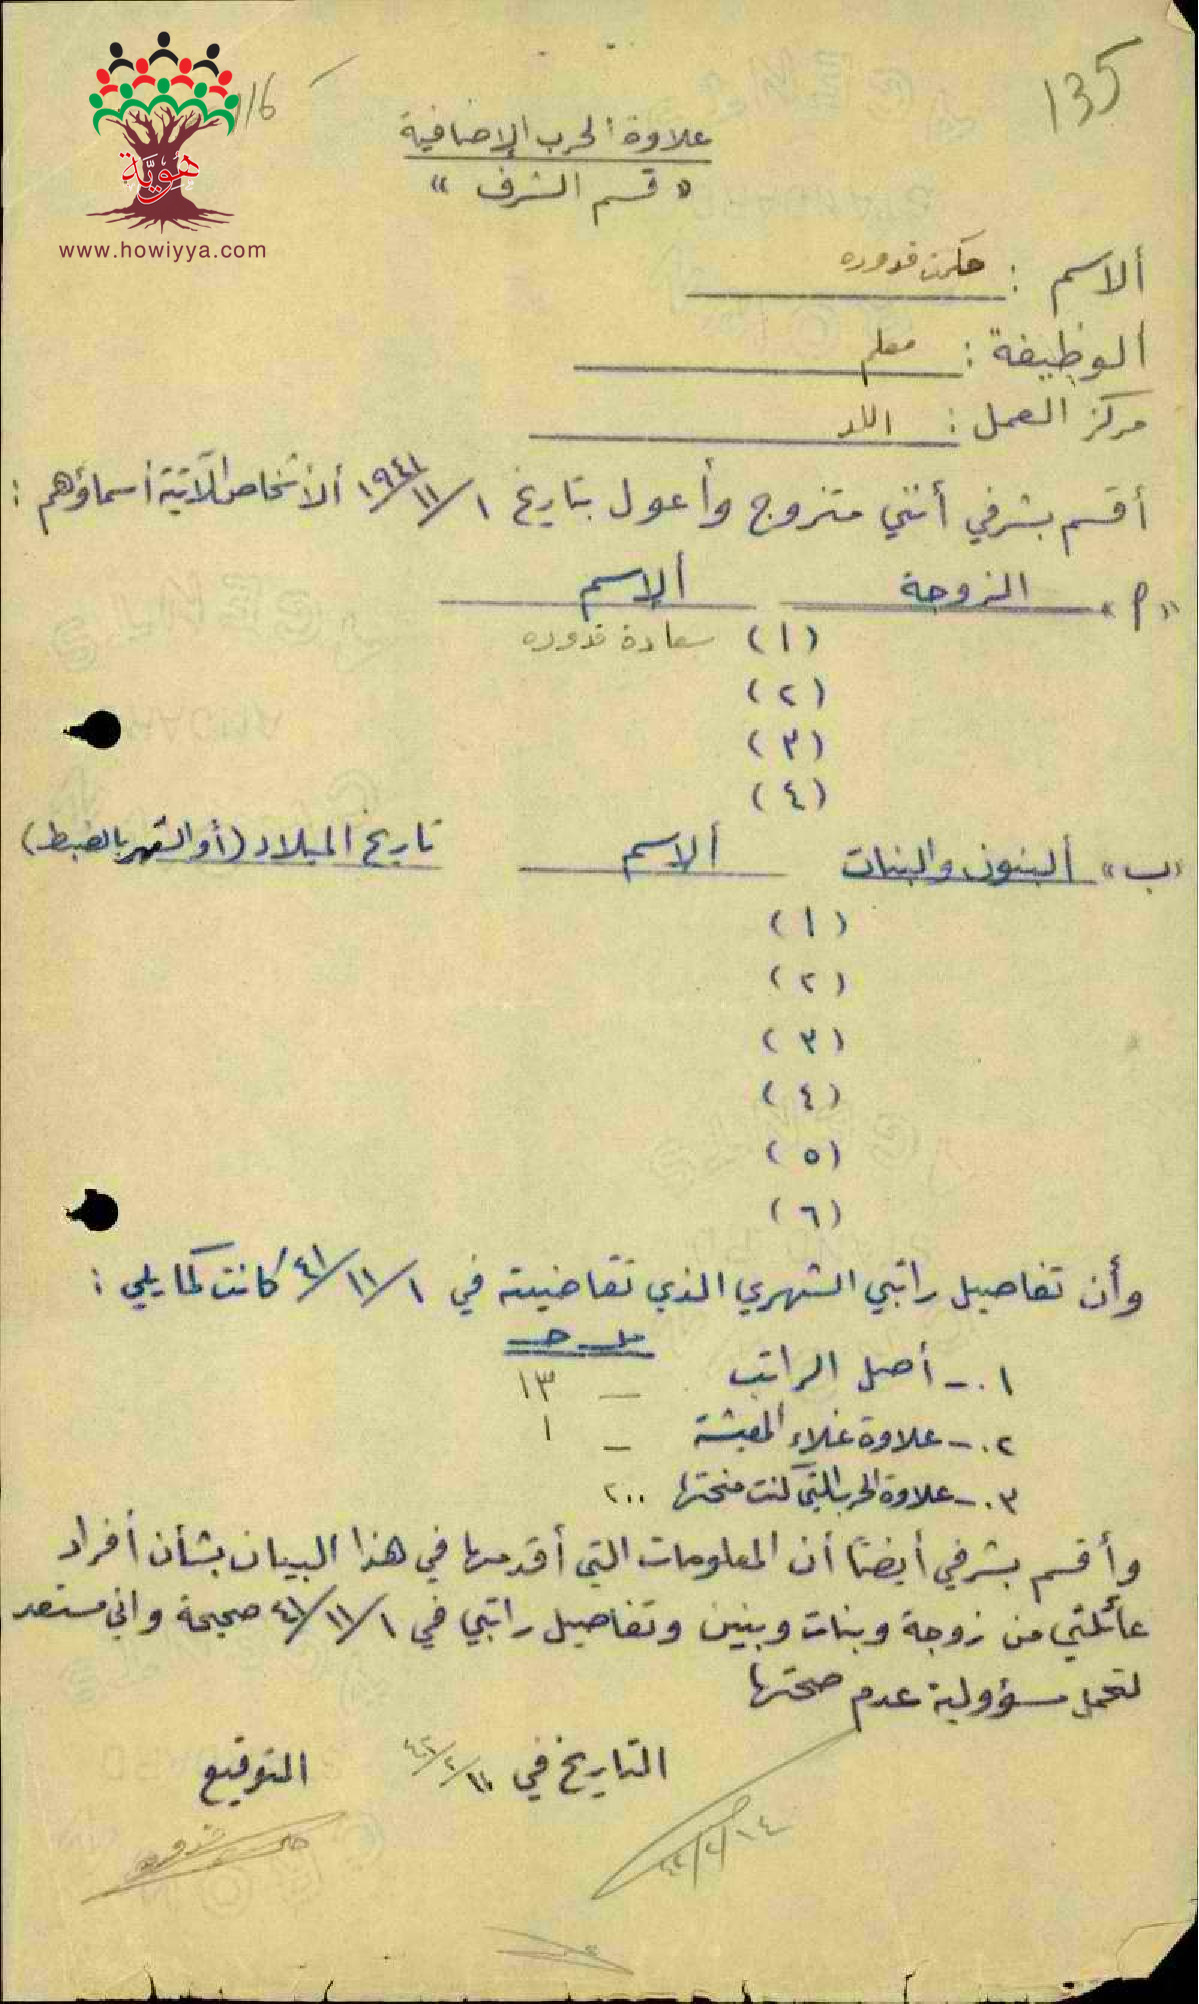 135
16
هوية
www.howiyya.com
علاوة الحرب الإضافية
« قسم الشرف »
ألاسم : حكمت قدوره
ألوظيفة : معلم
مركز العمل : اللد
أقسم بشرفي أنني متزوج وأعول بتاريخ ١/١١/١٩٤١ ألأشخاص الآتية أسماؤهم :
«أ» الزوجة ألإسم
(١) سعادة قدوره
(٢)
(٣)
(٤)
«ب» ألبنون والبنات ألاسم تاريخ الميلاد (أو الشهر بالضبط)
(١)
(٢)
(٣)
(٤)
(٥)
(٦)
وأن تفاصيل راتبي الشهري الذي تقاضيته في ١/١١/٤١ كانت كما يلي :
مل جـ
١.- أصل الراتب – ١٣
٢.- علاوة غلاء ألمعيشة – ١
٣.- علاوة الحرب التي كنت منحتها ٢٠٠
وأقسم بشرفي أيضا أن المعلومات التي أقدمها في هذا البيان بشأن أفراد
عائلتي من زوجة وبنات وبنين وتفاصيل راتبي في ١/١١/٤١ صحيحة واني مستعد
لتحمل مسؤولية عدم صحتها
التاريخ في ١١/٢/٤٢ التوقيع
حكمت قدوره
١٤/٢/٤٢